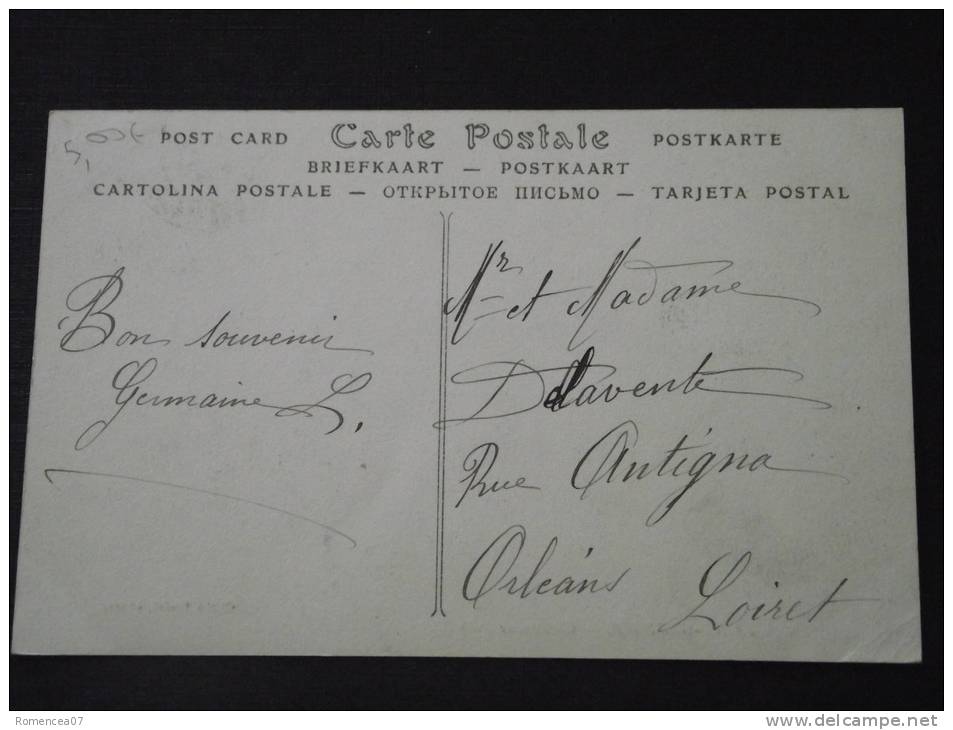 5,00€
POST CARD Carte Postale POSTKARTE
BRIEFKAART — POSTKAART
CARTOLINA POSTALE — ОТКРЫТОЕ ПИСЬМО — TARJETA POSTAL
Bon souvenir
Germaine L.
Mr et Madame
Delavente
Rue Antigna
Orléans
Loiret
Romencea07
www.delcampe.net